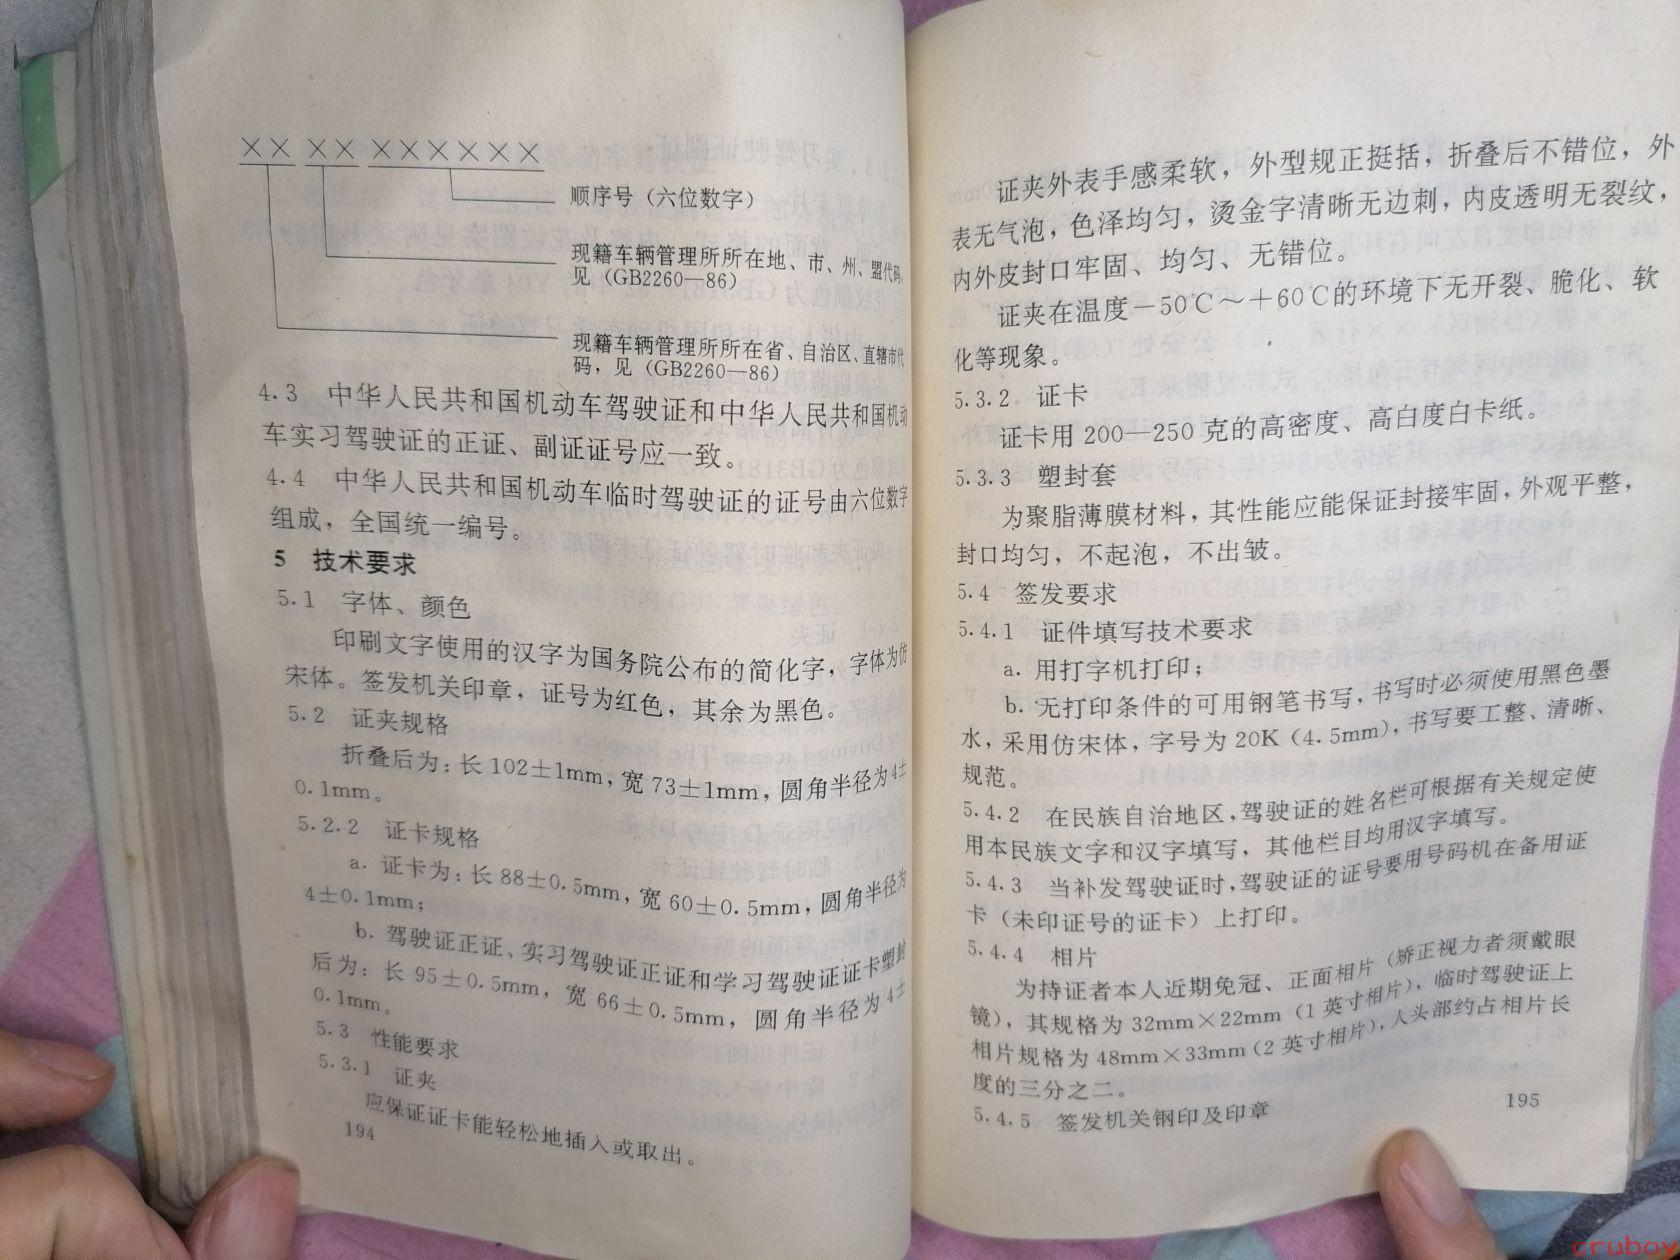 ×× ×× ××××××
顺序号（六位数字）
现籍车辆管理所所在地、市、州、盟代码，
见（GB2260—86）
现籍车辆管理所所在省、自治区、直辖市代
码，见（GB2260—86）
4.3 中华人民共和国机动车驾驶证和中华人民共和国机动
车实习驾驶证的正证、副证证号应一致。
4.4 中华人民共和国机动车临时驾驶证的证号由六位数字
组成，全国统一编号。
5 技术要求
5.1 字体、颜色
印刷文字使用的汉字为国务院公布的简化字，字体为仿
宋体。签发机关印章，证号为红色，其余为黑色。
5.2 证夹规格
折叠后为：长102±1mm，宽73±1mm，圆角半径为4±
0.1mm。
5.2.2 证卡规格
a. 证卡为：长88±0.5mm，宽60±0.5mm，圆角半径为
4±0.1mm；
b. 驾驶证正证、实习驾驶证正证和学习驾驶证证卡塑封
后为：长95±0.5mm，宽66±0.5mm，圆角半径为4±
0.1mm。
5.3 性能要求
5.3.1 证夹
应保证证卡能轻松地插入或取出。
194
证夹外表手感柔软，外型规正挺括，折叠后不错位，外
表无气泡，色泽均匀，烫金字清晰无边刺，内皮透明无裂纹，
内外皮封口牢固、均匀、无错位。
证夹在温度－50℃～＋60℃的环境下无开裂、脆化、软
化等现象。
5.3.2 证卡
证卡用200—250克的高密度、高白度白卡纸。
5.3.3 塑封套
为聚脂薄膜材料，其性能应能保证封接牢固，外观平整，
封口均匀，不起泡，不出皱。
5.4 签发要求
5.4.1 证件填写技术要求
a. 用打字机打印；
b. 无打印条件的可用钢笔书写，书写时必须使用黑色墨
水，采用仿宋体，字号为20K（4.5mm），书写要工整、清晰、
规范。
5.4.2 在民族自治地区，驾驶证的姓名栏可根据有关规定使
用本民族文字和汉字填写，其他栏目均用汉字填写。
5.4.3 当补发驾驶证时，驾驶证的证号要用号码机在备用证
卡（未印证号的证卡）上打印。
5.4.4 相片
为持证者本人近期免冠、正面相片（矫正视力者须戴眼
镜），其规格为32mm×22mm（1英寸相片），临时驾驶证上
相片规格为48mm×33mm（2英寸相片），人头部约占相片长
度的三分之二。
5.4.5 签发机关钢印及印章
195
cruboy